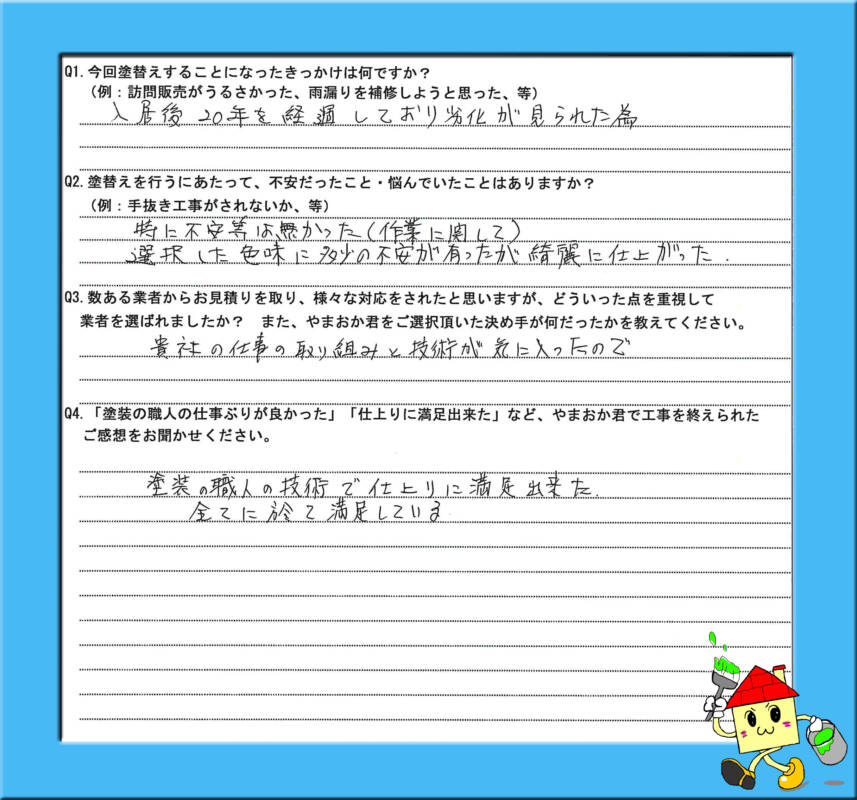 Q1. 今回塗替えすることになったきっかけは何ですか？
（例：訪問販売がうるさかった、雨漏りを補修しようと思った、等）
入居後20年を経過しており劣化が見られた為
Q2. 塗替えを行うにあたって、不安だったこと・悩んでいたことはありますか？
（例：手抜き工事がされないか、等）
特に不安等は無かった（作業に関して）
選択した色味に多少の不安が有ったが綺麗に仕上がった．
Q3. 数ある業者からお見積りを取り、様々な対応をされたと思いますが、どういった点を重視して
業者を選ばれましたか？　また、やまおか君をご選択頂いた決め手が何だったかを教えてください。
貴社の仕事の取り組みと技術が気に入ったので
Q4. 「塗装の職人の仕事ぶりが良かった」「仕上りに満足出来た」など、やまおか君で工事を終えられた
ご感想をお聞かせください。
塗装の職人の技術で仕上りに満足出来た．
全てに於て満足している